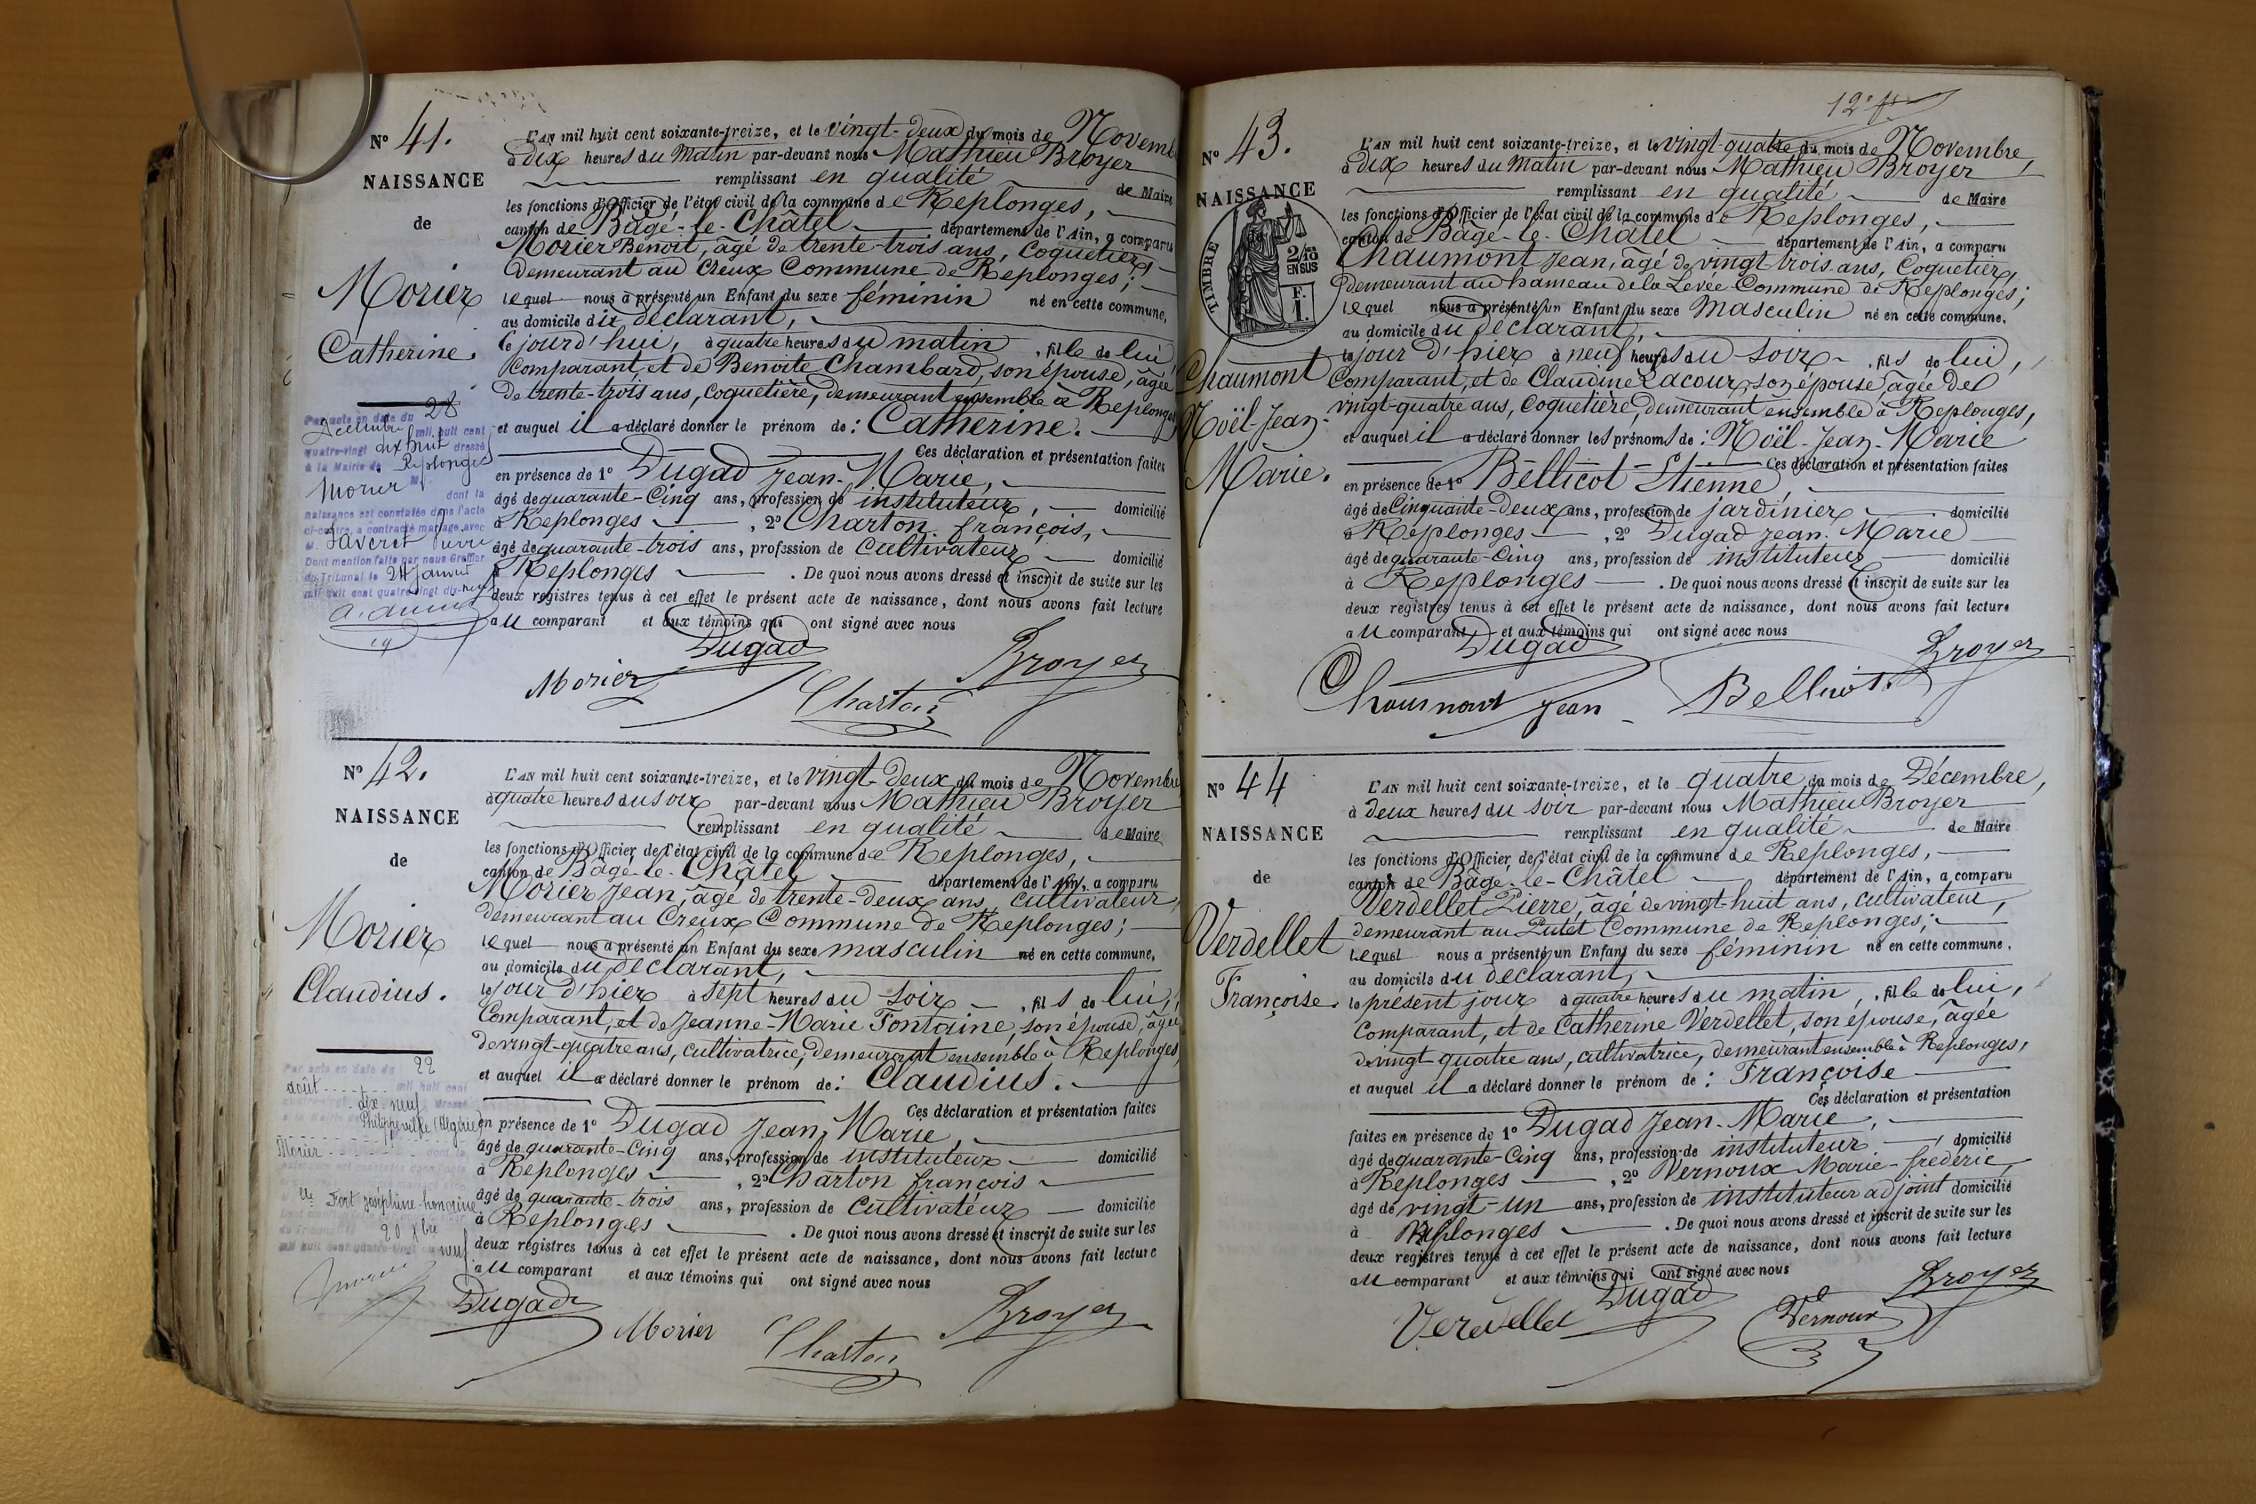 N° 41.
NAISSANCE
de
Morier
Catherine.
L'AN mil huit cent soixante-treize, et le vingt-deux du mois de Novemb
à dix heures du Matin par-devant nous Mathieu Broyer
remplissant en qualité de Maire
les fonctions d'Officier de l'état civil de la commune de Replonges,
canton de Bâgé-le-Châtel département de l'Ain, a comparu
Morier Benoit, âgé de trente-trois ans, Coquetier,
demeurant au Creux Commune de Replonges;
lequel nous a présenté un Enfant du sexe féminin né en cette commune,
au domicile du déclarant,
le jourd'hui, à quatre heures du matin, fille de lui
Comparant, et de Benoite Chambard, son épouse, âgée
de trente-trois ans, coquetière, demeurant ensemble à Replonges
et auquel il a déclaré donner le prénom de: Catherine.
Ces déclaration et présentation faites
en présence de 1° Dugad Jean-Marie,
âgé de quarante-Cinq ans, profession de instituteur, domicilié
à Replonges, 2° Charton françois,
âgé de quarante-trois ans, profession de Cultivateur domicilié
à Replonges. De quoi nous avons dressé et inscrit de suite sur les
deux registres tenus à cet effet le présent acte de naissance, dont nous avons fait lecture
au comparant et aux témoins qui ont signé avec nous
Dugad
Broyer
Morier
Charton
Par acte en date du 28
Décembre mil huit cent
quatre-vingt dix huit dressé
à la Mairie de Replonges
Morier
dont la
naissance est constatée dans l'acte
ci-contre, a contracté mariage avec
M. Favcret Pierre
Dont mention faite par nous Greffier
du Tribunal le 24 Janvier
mil huit cent quatre-vingt dix-neuf
N° 42.
NAISSANCE
de
Morier
Claudius.
L'AN mil huit cent soixante-treize, et le vingt-deux du mois de Novembre
à quatre heures du soir par-devant nous Mathieu Broyer
remplissant en qualité de Maire
les fonctions d'Officier de l'état civil de la commune de Replonges,
canton de Bâgé-le-Châtel département de l'Ain, a comparu
Morier Jean, âgé de trente-deux ans, cultivateur,
demeurant au Creux Commune de Replonges;
lequel nous a présenté un Enfant du sexe masculin né en cette commune,
au domicile du déclarant,
le jour d'hier à sept heures du soir, fils de lui,
Comparant, et de Jeanne-Marie Fontaine, son épouse, âgée
de vingt-quatre ans, cultivatrice, demeurant ensemble à Replonges,
et auquel il a déclaré donner le prénom de: Claudius.
Ces déclaration et présentation faites
en présence de 1° Dugad Jean Marie,
âgé de quarante-Cinq ans, profession de instituteur domicilié
à Replonges, 2° Charton françois
âgé de quarante-trois ans, profession de Cultivateur domicilié
à Replonges. De quoi nous avons dressé et inscrit de suite sur les
deux registres tenus à cet effet le présent acte de naissance, dont nous avons fait lecture
au comparant et aux témoins qui ont signé avec nous
Dugad
Morier
Charton
Broyer
Par acte en date du 22
août mil huit cent
dix-neuf
Philippeville (Algérie)
Morier
elle Fort Joséphine honorine
20 Xbre
neuf
12e ft
N° 43.
NAISSANCE
de
TIMBRE
2/10
EN SUS
F.
1.
Chaumont
Noël-Jean-
Marie.
L'AN mil huit cent soixante-treize, et le vingt-quatre du mois de Novembre,
à dix heures du Matin par-devant nous Mathieu Broyer
remplissant en qualité de Maire
les fonctions d'Officier de l'état civil de la commune de Replonges,
canton de Bâgé-le-Châtel département de l'Ain, a comparu
Chaumont Jean, âgé de vingt trois ans, Coquetier,
demeurant au hameau de la Levée Commune de Replonges;
lequel nous a présenté un Enfant du sexe Masculin né en cette commune.
au domicile du déclarant,
le jour d'hier à neuf heures du soir, fils de lui,
Comparant, et de Claudine Lacour, son épouse âgée de
vingt-quatre ans, coquetière, demeurant ensemble à Replonges,
et auquel il a déclaré donner les prénoms de: Noël-Jean-Marie
Ces déclaration et présentation faites
en présence de 1° Bellicot Etienne,
âgé de Cinquante-Deux ans, profession de jardinier domicilié
à Replonges, 2° Dugad Jean-Marie
âgé de quarante-Cinq ans, profession de instituteur domicilié
à Replonges. De quoi nous avons dressé et inscrit de suite sur les
deux registres tenus à cet effet le présent acte de naissance, dont nous avons fait lecture
au comparant et aux témoins qui ont signé avec nous
Dugad
Broyer
Chaumont Jean
Bellicot
N° 44
NAISSANCE
de
Verdellet
Françoise.
L'AN mil huit cent soixante-treize, et le quatre du mois de Décembre,
à deux heures du soir par-devant nous Mathieu Broyer
remplissant en qualité de Maire
les fonctions d'Officier de l'état civil de la commune de Replonges,
canton de Bâgé-le-Châtel département de l'Ain, a comparu
Verdellet Pierre, âgé de vingt-huit ans, cultivateur,
demeurant au Putet Commune de Replonges;
lequel nous a présenté un Enfant du sexe féminin né en cette commune.
au domicile du déclarant,
le présent jour à quatre heures du matin, fille de lui,
Comparant, et de Catherine Verdellet, son épouse, âgée
de vingt quatre ans, cultivatrice, demeurant ensemble à Replonges,
et auquel il a déclaré donner le prénom de: Françoise
Ces déclaration et présentation
faites en présence de 1° Dugad Jean-Marie,
âgé de quarante-Cinq ans, profession de instituteur, domicilié
à Replonges, 2° Vernoux Marie-frédéric,
âgé de vingt-un ans, profession de instituteur adjoint domicilié
à Replonges. De quoi nous avons dressé et inscrit de suite sur les
deux registres tenus à cet effet le présent acte de naissance, dont nous avons fait lecture
au comparant et aux témoins qui ont signé avec nous
Broyer
Dugad
Verdellet
Vernoux